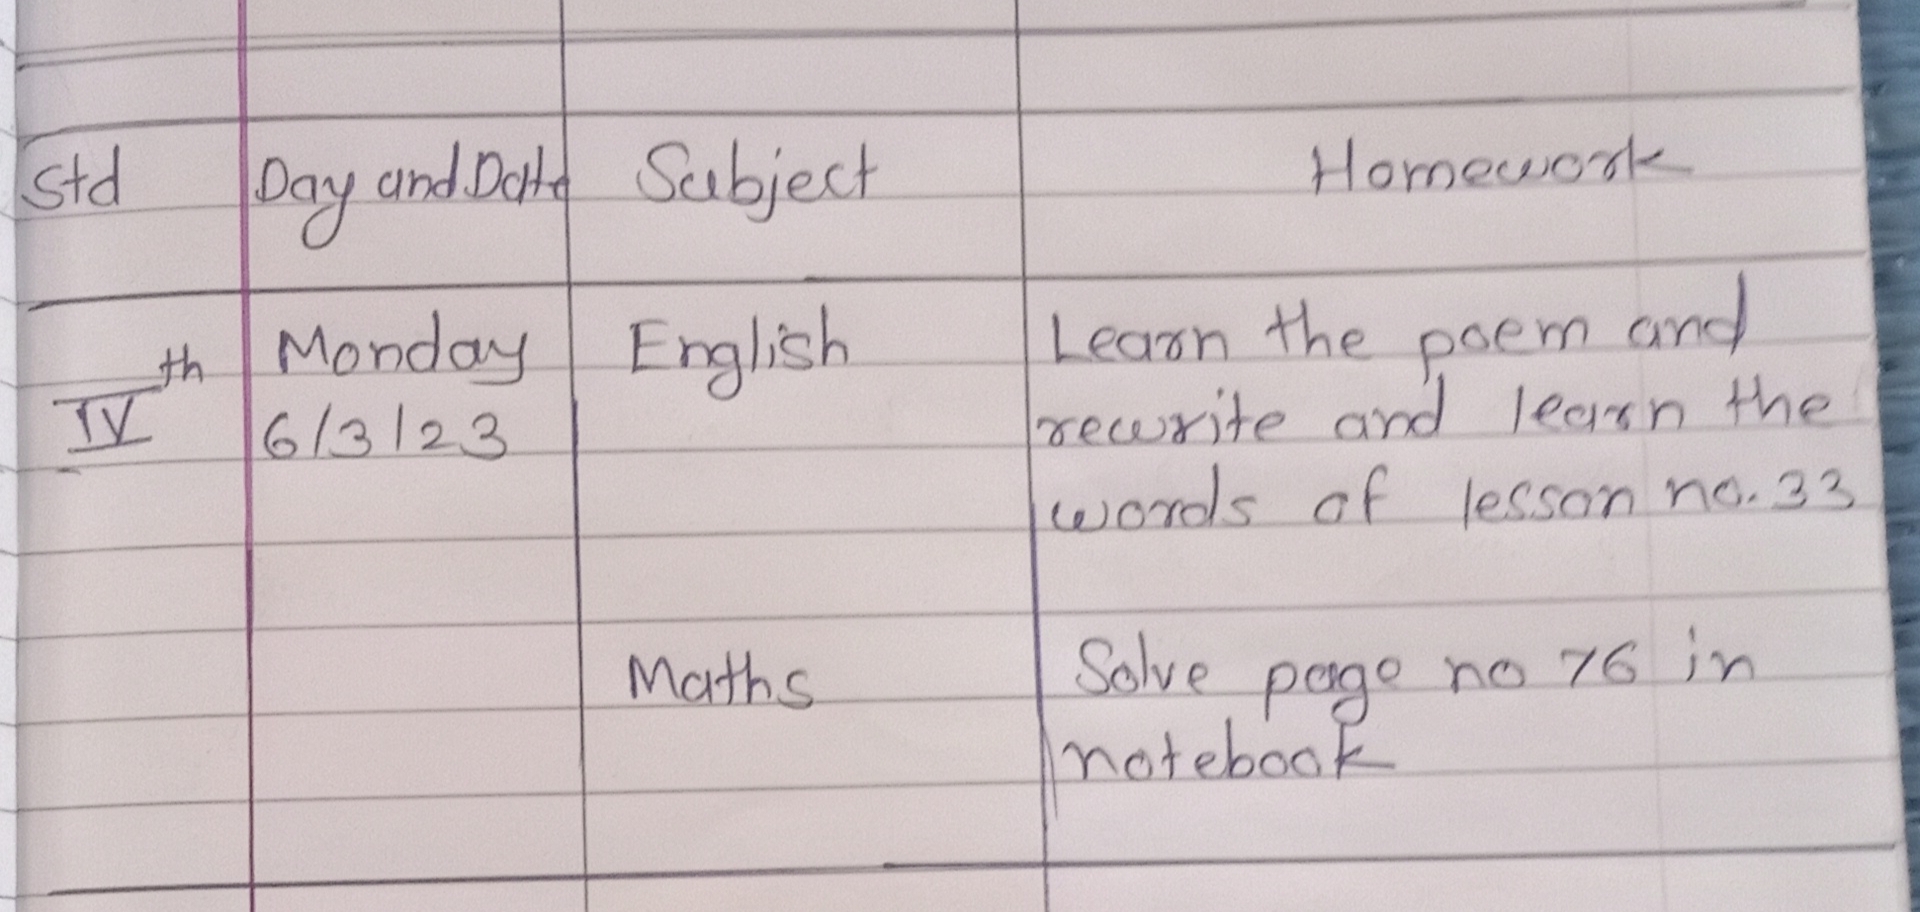 Std Day and Date Subject Homework
IVth Monday English Learn the poem and
6/3/23 rewrite and learn the
words of lesson no. 33
Maths Solve page no 76 in
notebook